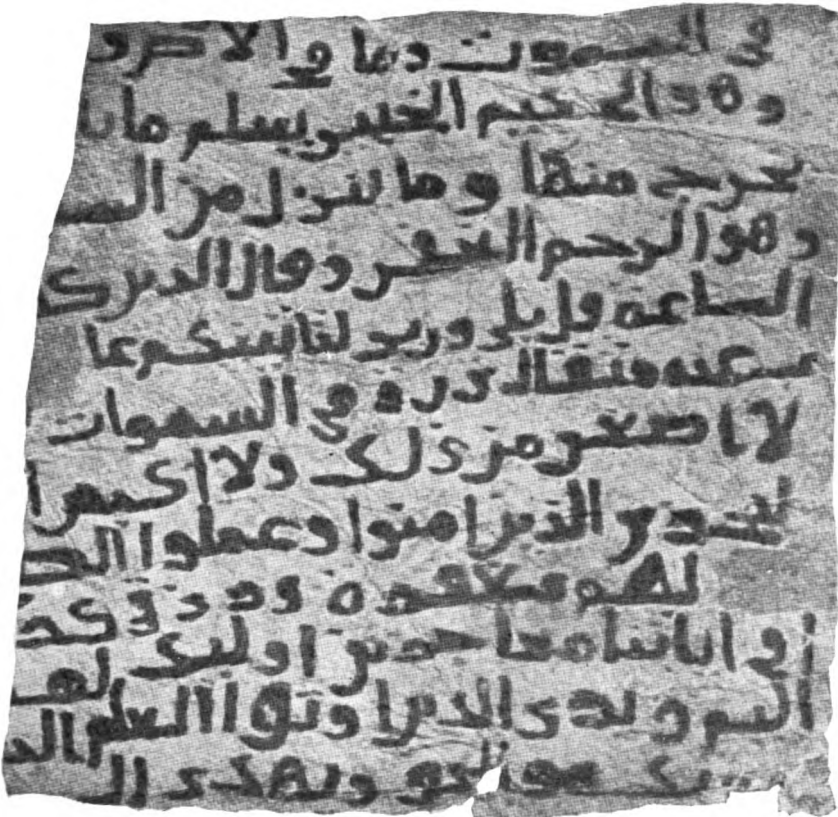 في السموت وما في الارض و
وهو الحكيم الخبير يعلم ما يل
يخرج منها وما ينزل من السـ
وهو الرحيم الغفر وقال الذين كـ
الساعه قل بلى وربي لتاتينكم عا
عنه مثقال ذره في السموات
لا اصغر من ذلك ولا اكبر ا
ليجزي الذين امنوا وعملوا الصـ
لهم مغفره ورزق كر
في اياتنا معاجزين اوليك لهم
اليم ويرى الذين اوتوا العلم الذ
ربك هو الحق ويهدي ال